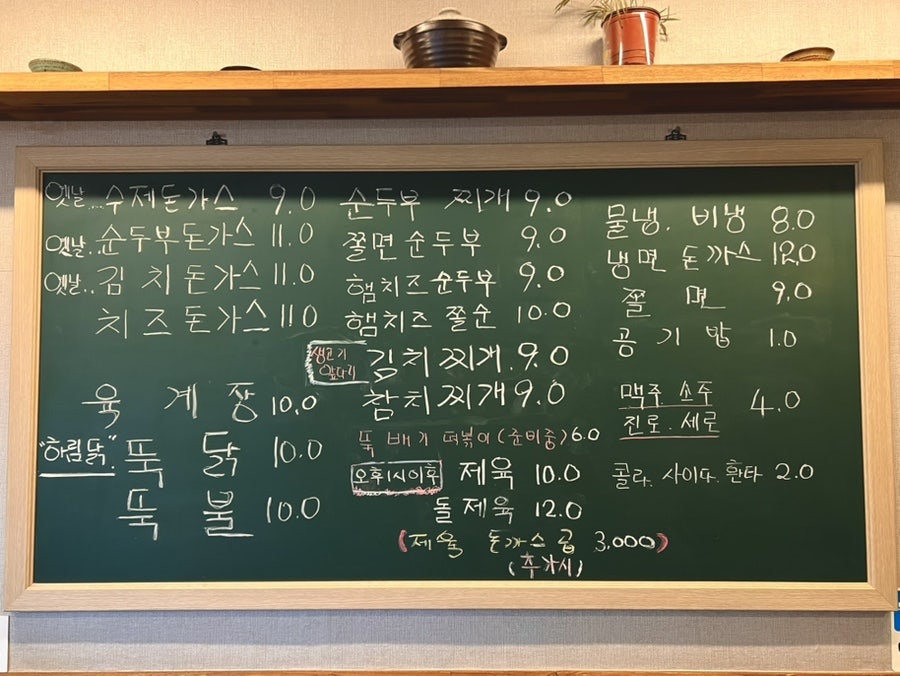 옛날.. 수제돈가스 9.0
옛날.. 순두부돈가스 11.0
옛날.. 김치돈가스 11.0
치즈돈가스 11.0
육계장 10.0
"하림닭" 뚝닭 10.0
뚝불 10.0
순두부 찌개 9.0
쫄면순두부 9.0
햄치즈순두부 9.0
햄치즈쫄순 10.0
생고기
앞다리
김치찌개 9.0
참치찌개 9.0
뚝배기 떡볶이(준비중) 6.0
오후1시이후 제육 10.0
돌제육 12.0
(제육 돈까스 곱 3,000)
(추가시)
물냉. 비냉 8.0
냉면 돈까스 12.0
쫄면 9.0
공기밥 1.0
맥주 소주 4.0
진로. 세로
콜라. 사이다. 환타 2.0